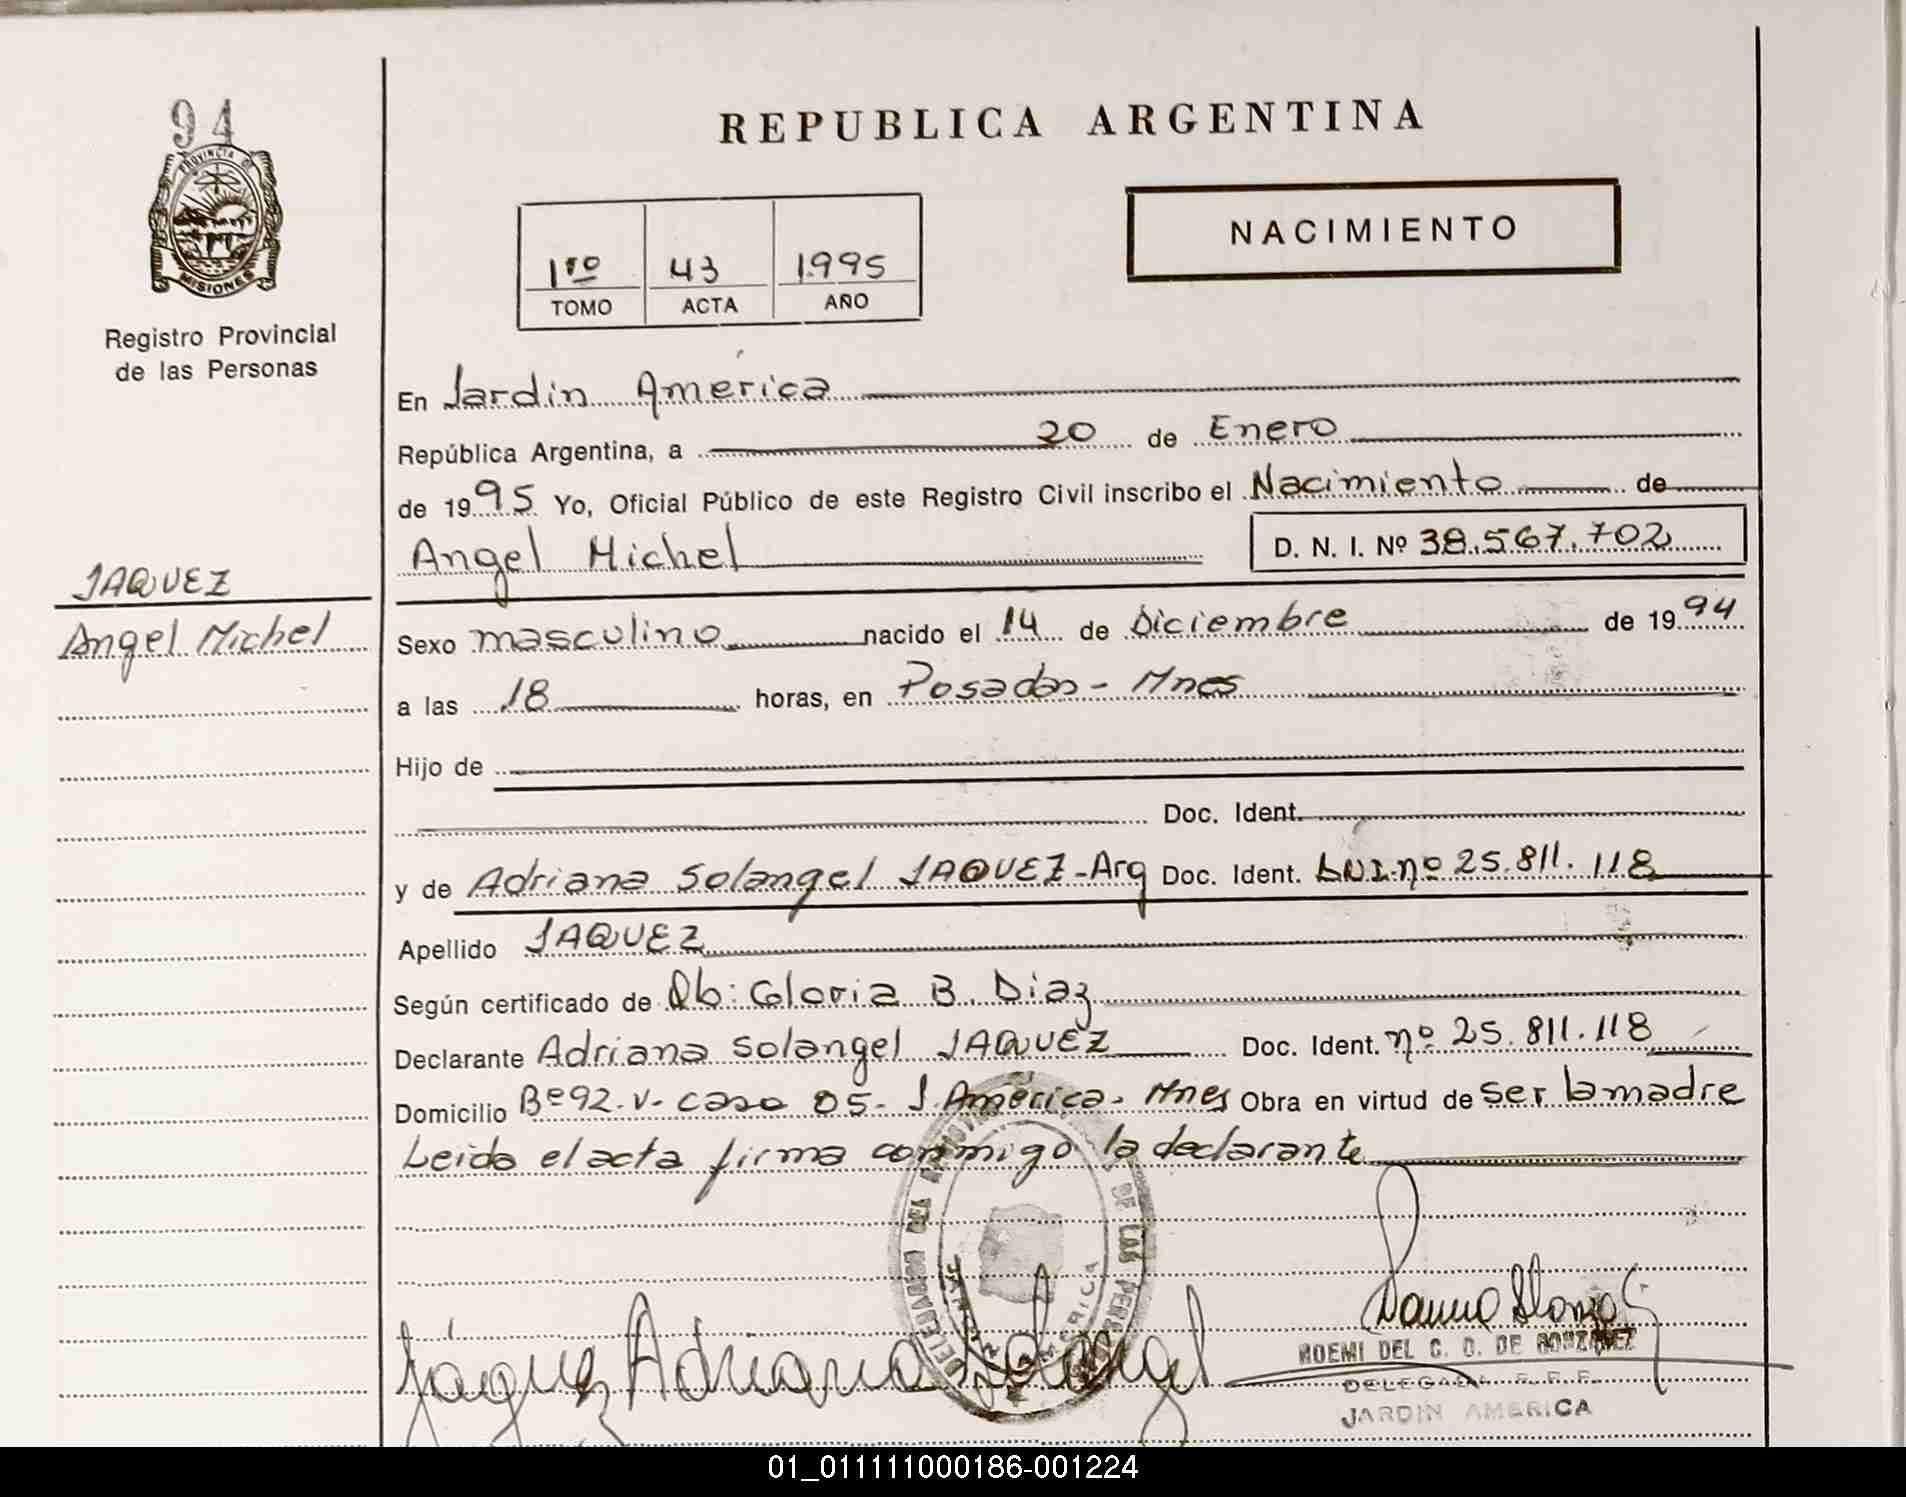 94
PROVINCIA DE
MISIONES
Registro Provincial
de las Personas
JAQUEZ
Angel Michel
REPUBLICA ARGENTINA
NACIMIENTO
1ro 43 1995
TOMO ACTA AÑO
En Jardin America
República Argentina, a 20 de Enero
de 1995 Yo, Oficial Público de este Registro Civil inscribo el Nacimiento de
Angel Michel D. N. I. Nº 38.567.702
Sexo masculino nacido el 14 de Diciembre de 1994
a las 18 horas, en Posadas - Mnes
Hijo de
Doc. Ident.
y de Adriana Solangel JAQUEZ - Arg Doc. Ident. DNI. nº 25.811.118
Apellido JAQUEZ
Según certificado de Ob: Gloria B. Diaz
Declarante Adriana Solangel JAQUEZ Doc. Ident. nº 25.811.118
Domicilio Bº 92. V. casa 05 - J. América - Mnes Obra en virtud de ser la madre
Leida el acta firma conmigo la declarante
DELEGACION DEL REGISTRO DE LAS PERSONAS
Jáquez Adriana Solangel
NOEMI DEL C. D. DE GONZALEZ
DELEGADA R.P.P.
JARDIN AMERICA
01_011111000186-001224